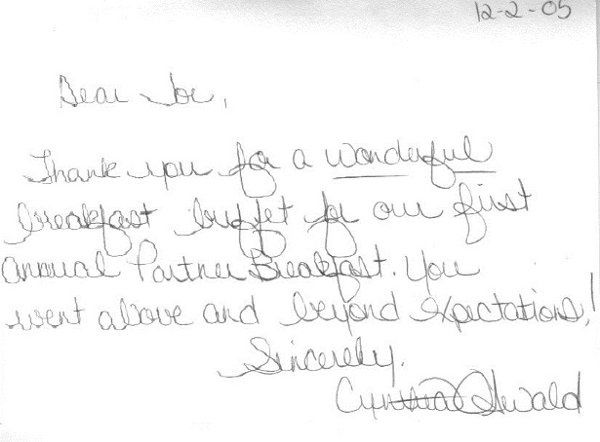 12-2-05
Dear Joe,
Thank you for a wonderful
breakfast buffet for our first
annual Partner Breakfast. You
went above and beyond expectations!
Sincerely,
Cynthia